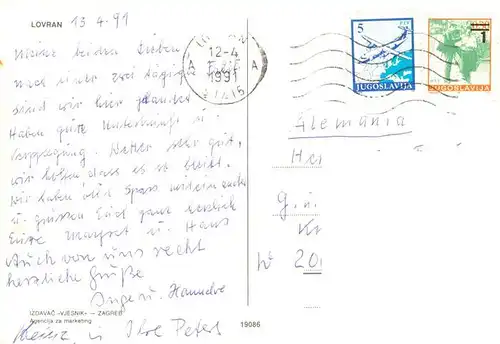 LOVRAN 13.4.91
Meine beiden Lieben
nach einer zwei tägigen
sind wir hier gelandet
Haben gute Unterkunft u.
Verpflegung. Wetter sehr gut,
wir hoffen dass es so bleibt.
Wir haben viel Spass
u. grüssen Euch ganz herzlich
Eure Margret u. Hans
Auch von uns recht
herzliche Grüße
Inge u. Hannelore
IZDAVAČ »VJESNIK« — ZAGREB
Agencija za marketing
in Ihre Peters
19086
12-4
1991
A A
5
JUGOSLAVIJA
1
JUGOSLAVIJA
Alemánia
He
g. u.
K
W 20